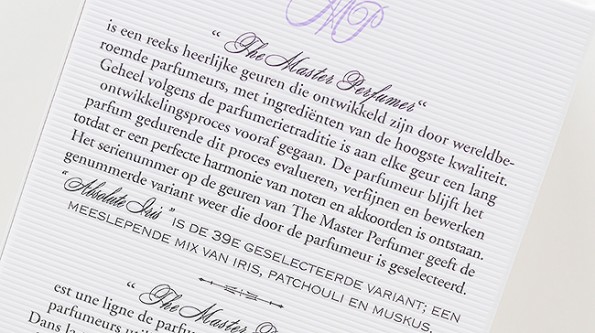 MP
“ The Master Perfumer “
is een reeks heerlijke geuren die ontwikkeld zijn door wereldbe-
roemde parfumeurs, met ingrediënten van de hoogste kwaliteit.
Geheel volgens de parfumerietraditie is aan elke geur een lang
ontwikkelingsproces vooraf gegaan. De parfumeur blijft het
parfum gedurende dit proces evalueren, verfijnen en bewerken
totdat er een perfecte harmonie van noten en akkoorden is ontstaan.
Het serienummer op de geuren van The Master Perfumer geeft de
genummerde variant weer die door de parfumeur is geselecteerd.
“Absolute Iris” IS DE 39E GESELECTEERDE VARIANT; EEN
MEESLEPENDE MIX VAN IRIS, PATCHOULI EN MUSKUS.
“ The Master
est une ligne de parfu
parfumeurs
Dans la